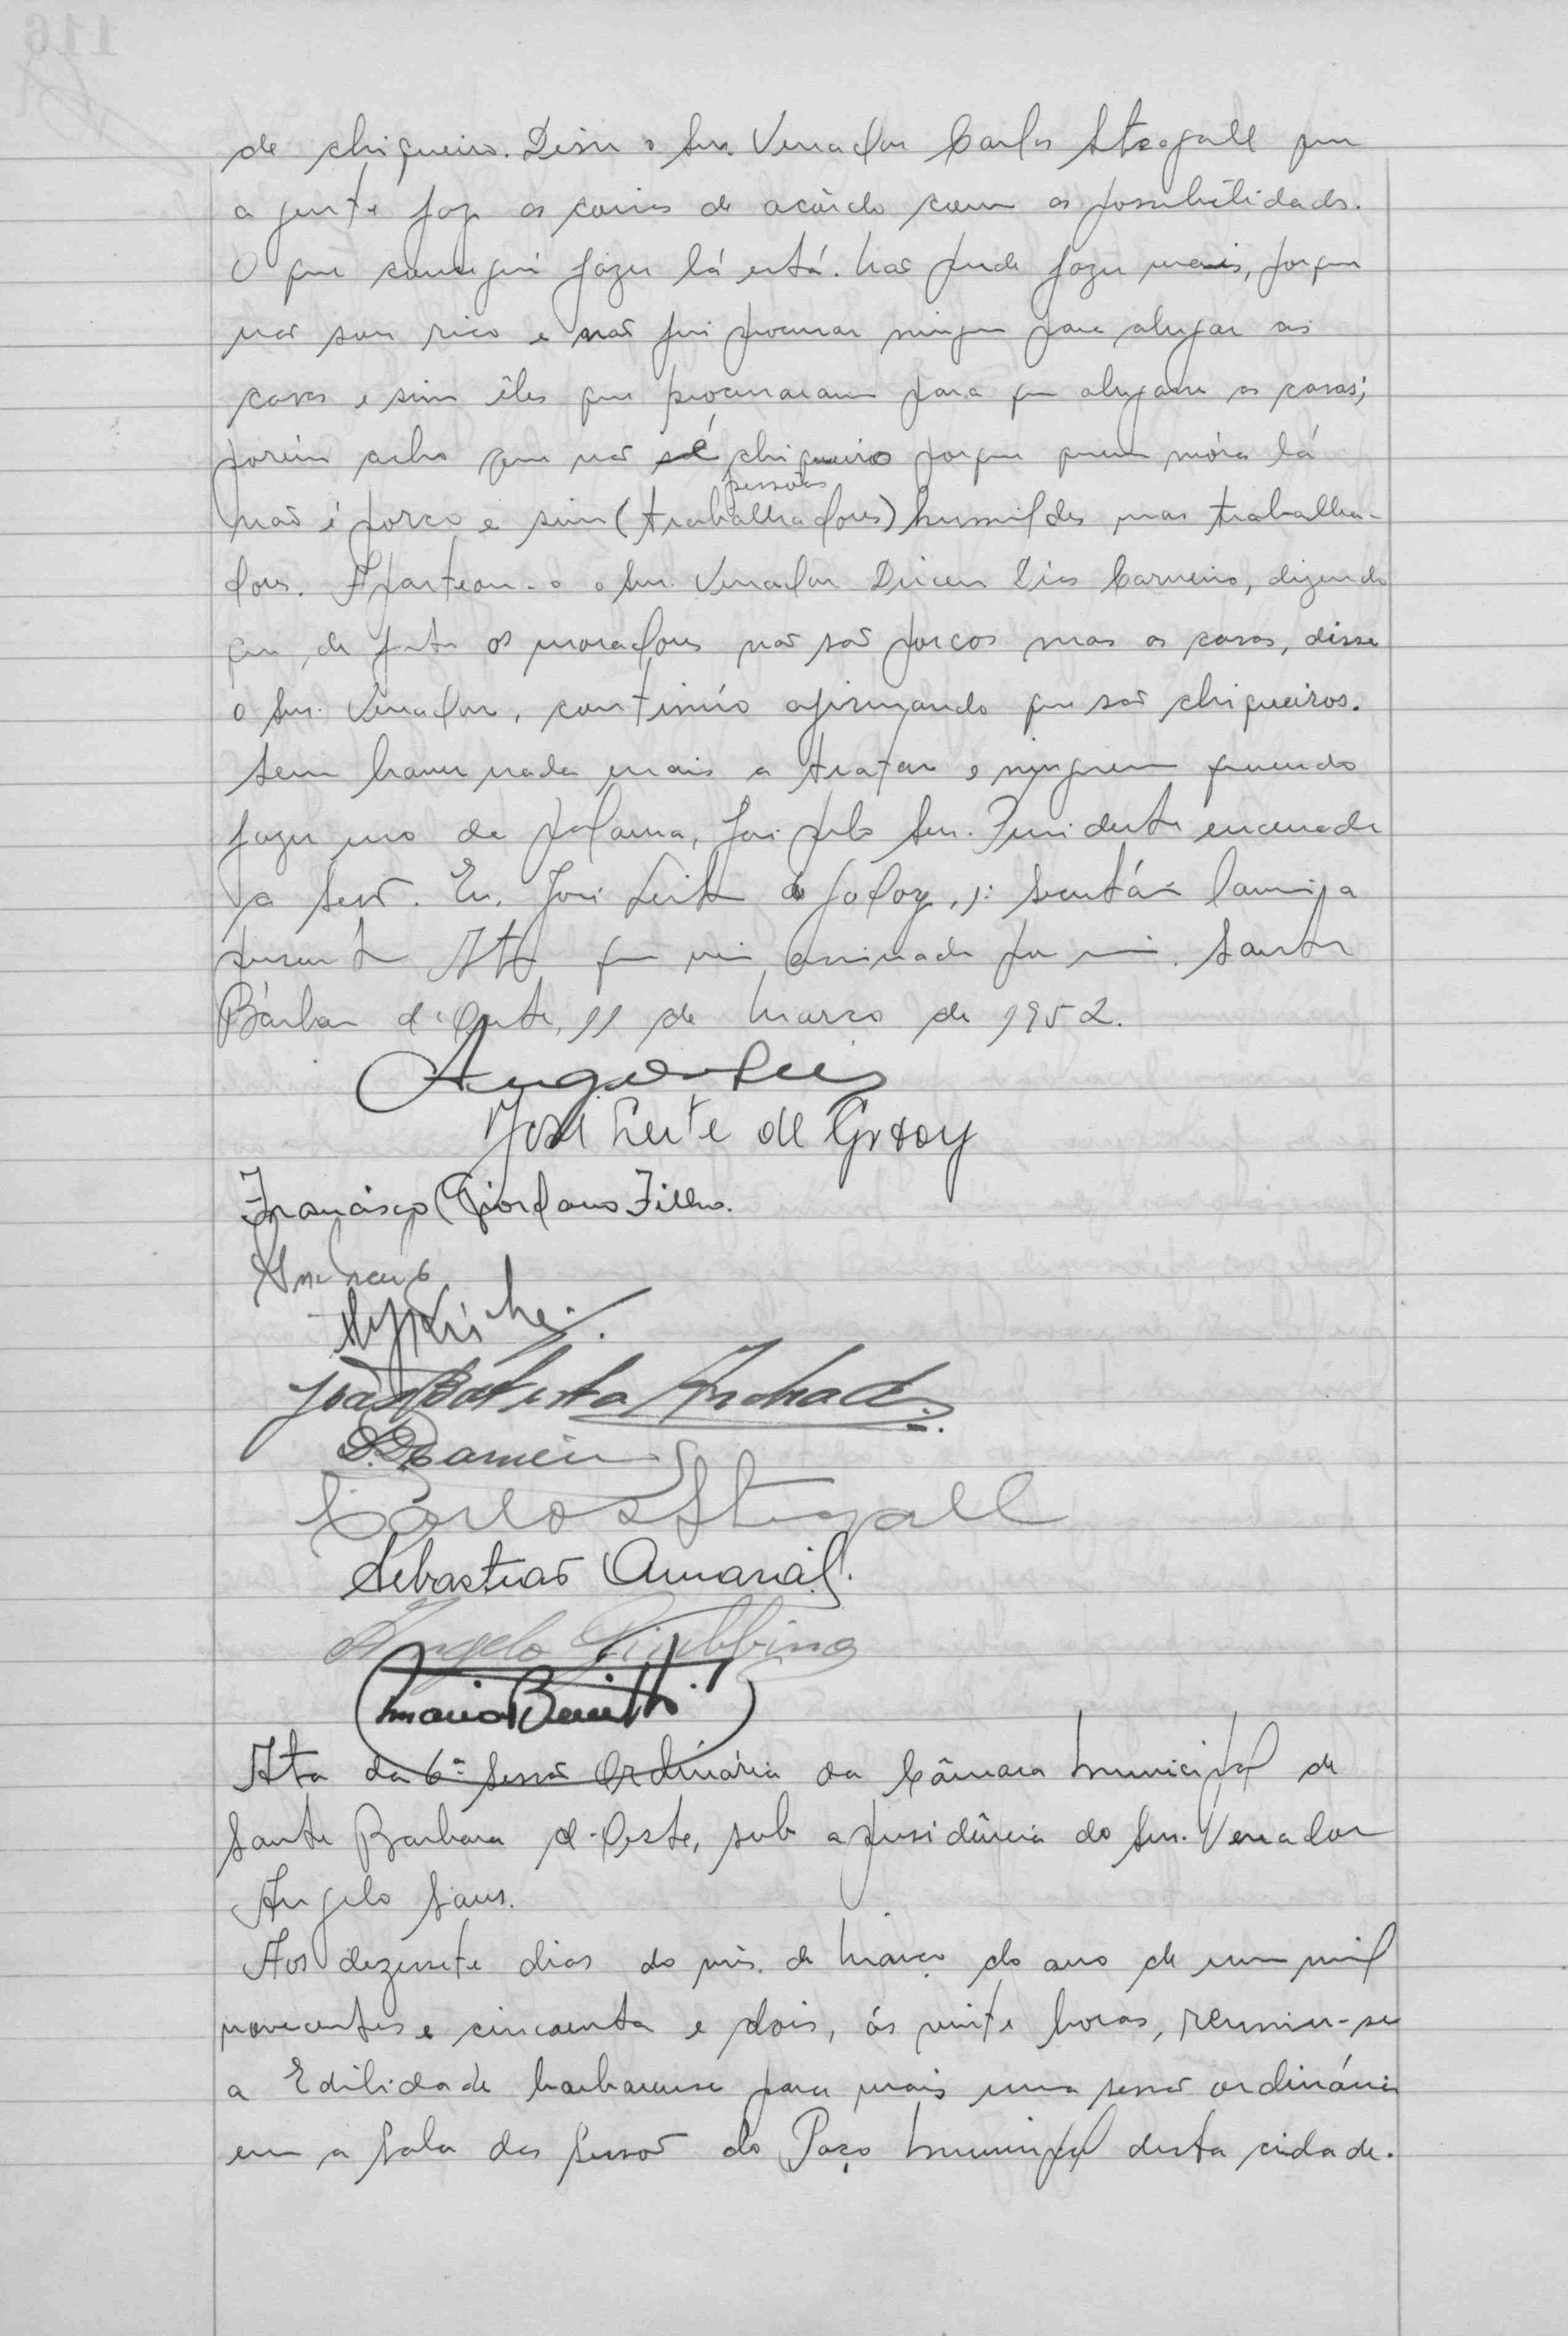 de chiqueiro. Disse o Snr. Vereador Carlos Steagall que
a gente faz as coisas de acôrdo com as possibilidades.
O que consegui fazer lá está. Não pude fazer mais, porque
não sou rico e não fui procurar ninguem para alugar as
casas e sim êles que procuraram para que alugasse as casas;
porém acho que não é chiqueiro porque quem móra lá
pessôas
não é porco e sim (trabalhadores) humildes mas trabalha-
dores. Aparteou-o o Snr. Vereador Dirceu Dias Carneiro, dizendo
que, de fato os moradores não são porcos mas as casas, disse
o Snr. Vereador, continúo afirmando que são chiqueiros.
Sem haver nada mais a tratar e ninguem querendo
fazer uso da palavra, foi pelo Snr. Presidente encerrada
a sessão. Eu, José Leite de Godoy, 1º Secretário lavrei a
presente Ata que vai assinada por mim. Santa
Bárbara d'Oeste, 11 de Março de 1952.
Angelo Sans
José Leite de Godoy
Francisco Giordano Filho.
João Batista Andrade.
D. D. Carneiro
Carlos Steagall
Sebastião Amaral.
Angelo Giubbina
Ata da 6ª Sessão Ordinária da Câmara Municipal de
Santa Barbara d'Oeste, sob a presidência do Snr. Vereador
Angelo Sans.
Aos dezessete dias do mês de Março do ano de um mil
novecentos e cincoenta e dois, ás vinte horas, reuniu-se
a Edilidade barbarense para mais uma sessão ordinária
em a sala das Sessão do Paço Municipal desta cidade.